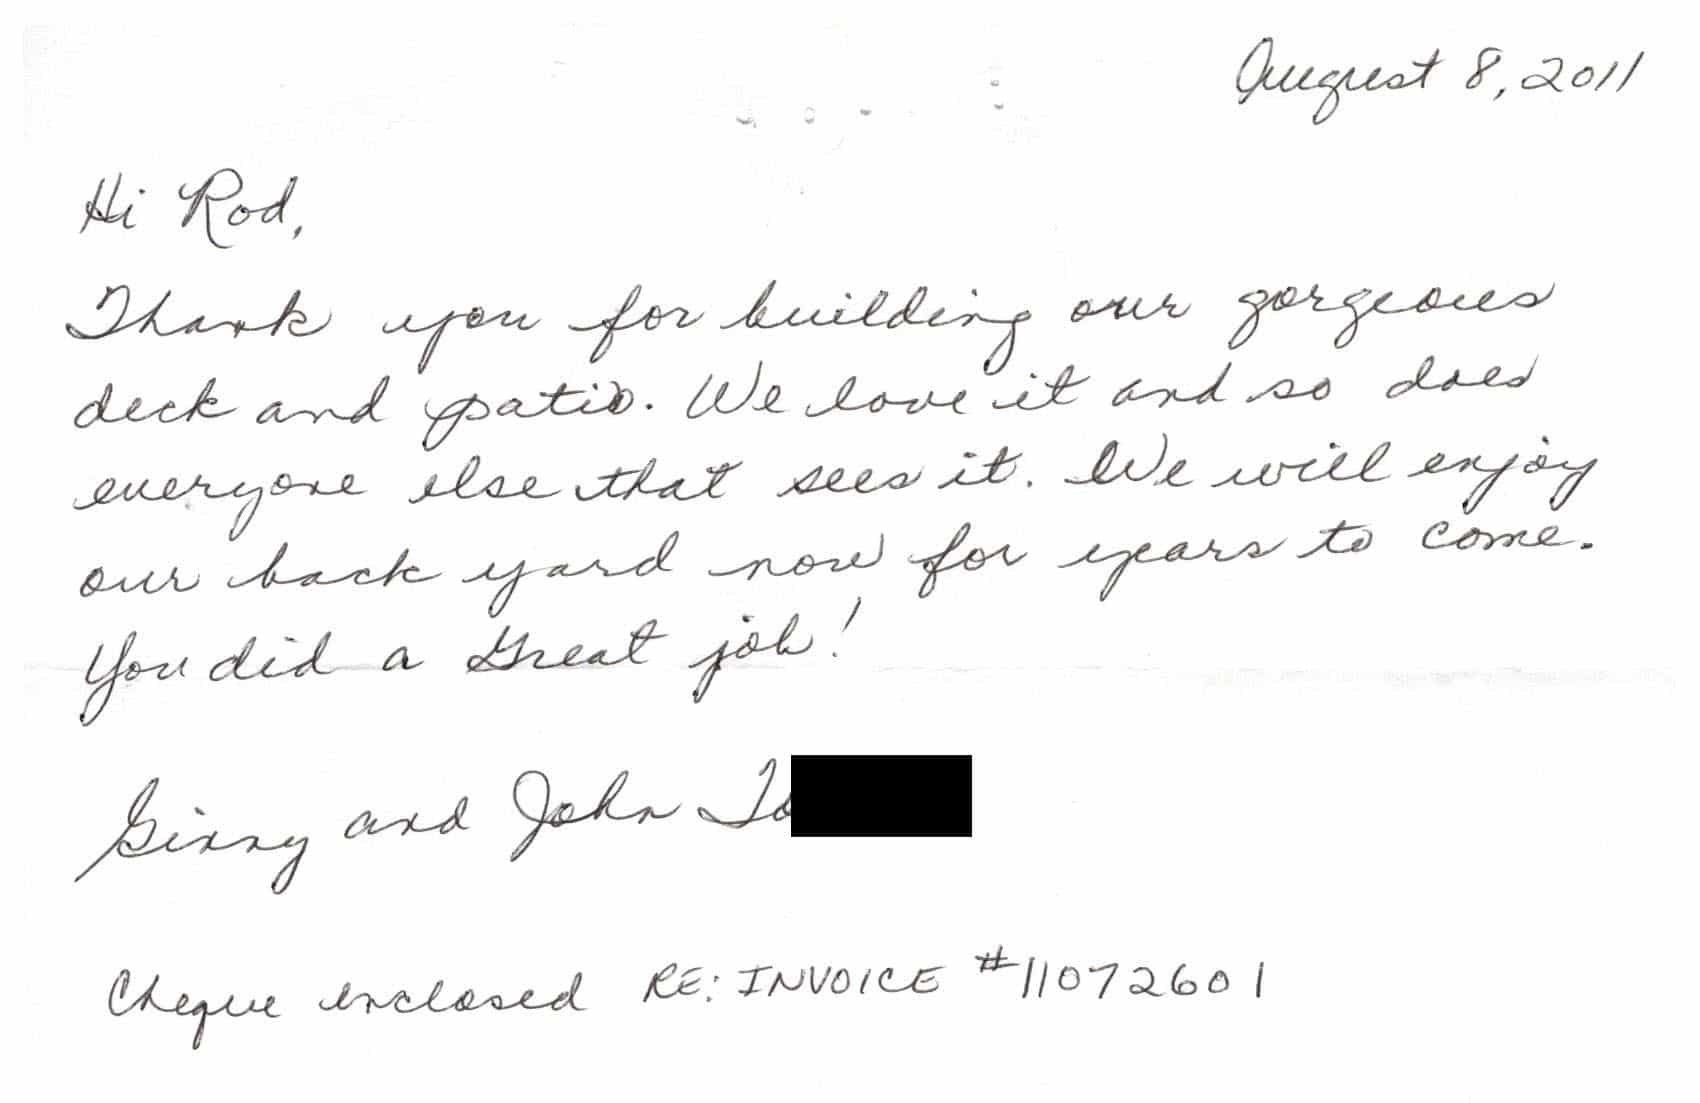 August 8, 2011
Hi Rod,
Thank you for building our gorgeous
deck and patio. We love it and so does
everyone else that sees it. We will enjoy
our back yard now for years to come.
You did a Great job!
Ginny and John
Cheque enclosed RE: INVOICE #11072601